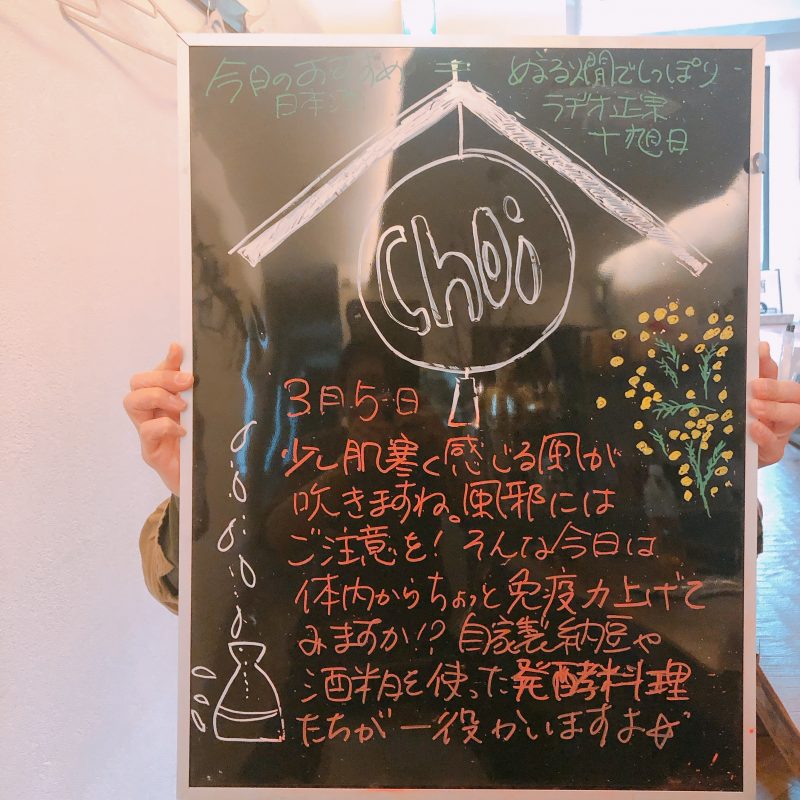 今日のおすすめ
日本酒
ぬる燗でしっぽり
ラヂオ正宗
十旭日
choi
3月5日
少し肌寒く感じる風が
吹きますね。風邪には
ご注意を！そんな今日は
体内からちょっと免疫力上げて
みますか!?自家製納豆や
酒粕を使った発酵料理
たちが一役かいますよ☆